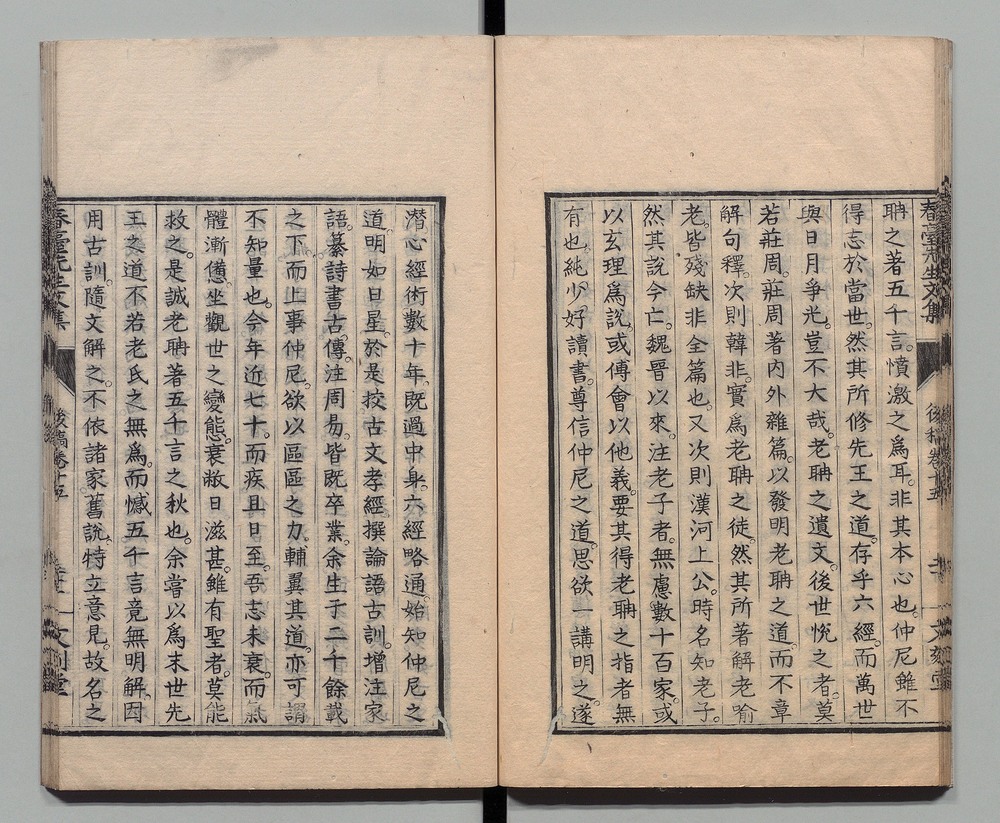 聃之著五千言。憤激之爲耳。非其本心也。仲尼雖不
得志於當世。然其所修先王之道。存乎六經。而萬世
與日月爭光。豈不大哉。老聃之遺文。後世悅之者。莫
若莊周。莊周著內外雜篇。以發明老聃之道。而不章
解句釋。次則韓非。實爲老聃之徒。然其所著解老喻
老。皆殘缺非全篇也。又次則漢河上公。時名知老子。
然其說今亡。魏晉以來。注老子者。無慮數十百家。或
以玄理爲說。或傅會以他義。要其得老聃之指者。無
有也。純少好讀書。尊信仲尼之道。思欲一講明之。遂
潛心經術數十年。既過中身。六經略通。始知仲尼之
道。明如日星。於是挍古文孝經。撰論語古訓。增注家
語。纂詩書古傳。注周易。皆既卒業。余生于二千餘載
之下。而上事仲尼。欲以區區之力。輔翼其道。亦可謂
不知量也。今年近七十。而疾且日至。吾志未衰。而氣
體漸憊。坐觀世之變態。衰敝日滋甚。雖有聖者。莫能
救之。是誠老聃著五千言之秋也。余嘗以爲末世先
王之道。不若老氏之無爲。而憾五千言竟無明解。因
用古訓。隨文解之。不依諸家舊說。特立意見。故名之
春臺先生文集
後稿卷十五